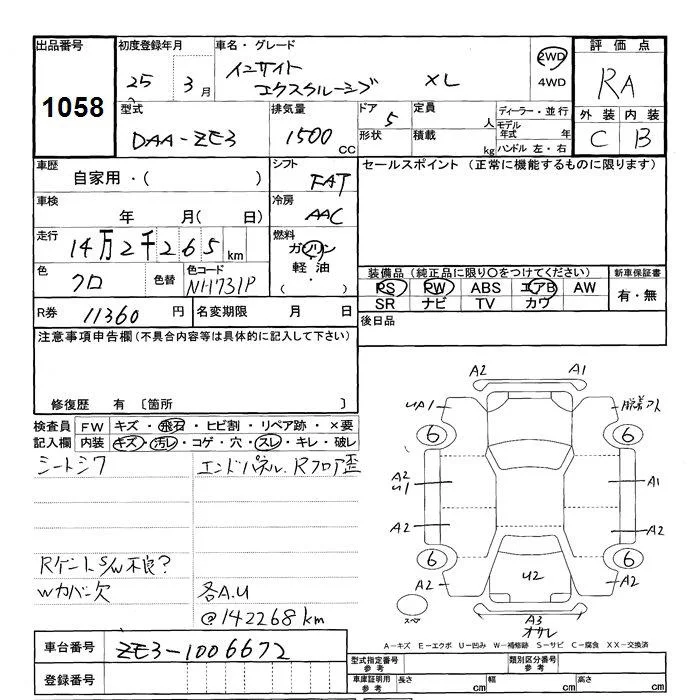 出品番号 初度登録年月 車名・グレード 評価点
1058 25 3月 インサイト エクスクルーシブ XL 2WD 4WD RA
外装 内装
C B
型式 排気量 ドア 定員 ディーラー・並行
DAA-ZE3 1500 CC 5 人 モデル年式 年
形状 積載 kg ハンドル 左・右
車歴 シフト セールスポイント (正常に機能するものに限ります)
自家用・( ) FAT
車検 冷房
年 月( 日) AAC
走行 燃料
14万2千265km ガソリン
軽油
( ・ )
色 色替 色コード
クロ NH731P
装備品(純正品に限り○をつけてください) 新車保証書
PS PW ABS エアB AW 有・無
SR ナビ TV カワ
R券 11360円 名変期限 月 日 後日品
注意事項申告欄(不具合内容等は具体的に記入して下さい)
修復歴 有 〔箇所 〕
検査員 FW キズ・飛石・ヒビ割・リペア跡・×要
記入欄 内装 キズ・汚レ・コゲ・穴・スレ・キレ・破レ
シートシワ エンドパネル.Rフロア歪
RゲートS/W不良?
Wカバー欠 各A.U
@142268km
A2 A1
UA1
6 6
A2 U1 A1
A2 A2
6 6
A2 U2 A2
スペア A3
オサレ
A-キズ E-エクボ U-凹み W-補修跡 S-サビ C-腐食 XX-交換済
車台番号 ZE3-1006672
登録番号
型式指定番号 参考 類別区分番号 参考
車庫証明用 参考 長さ cm 幅 cm 高さ cm